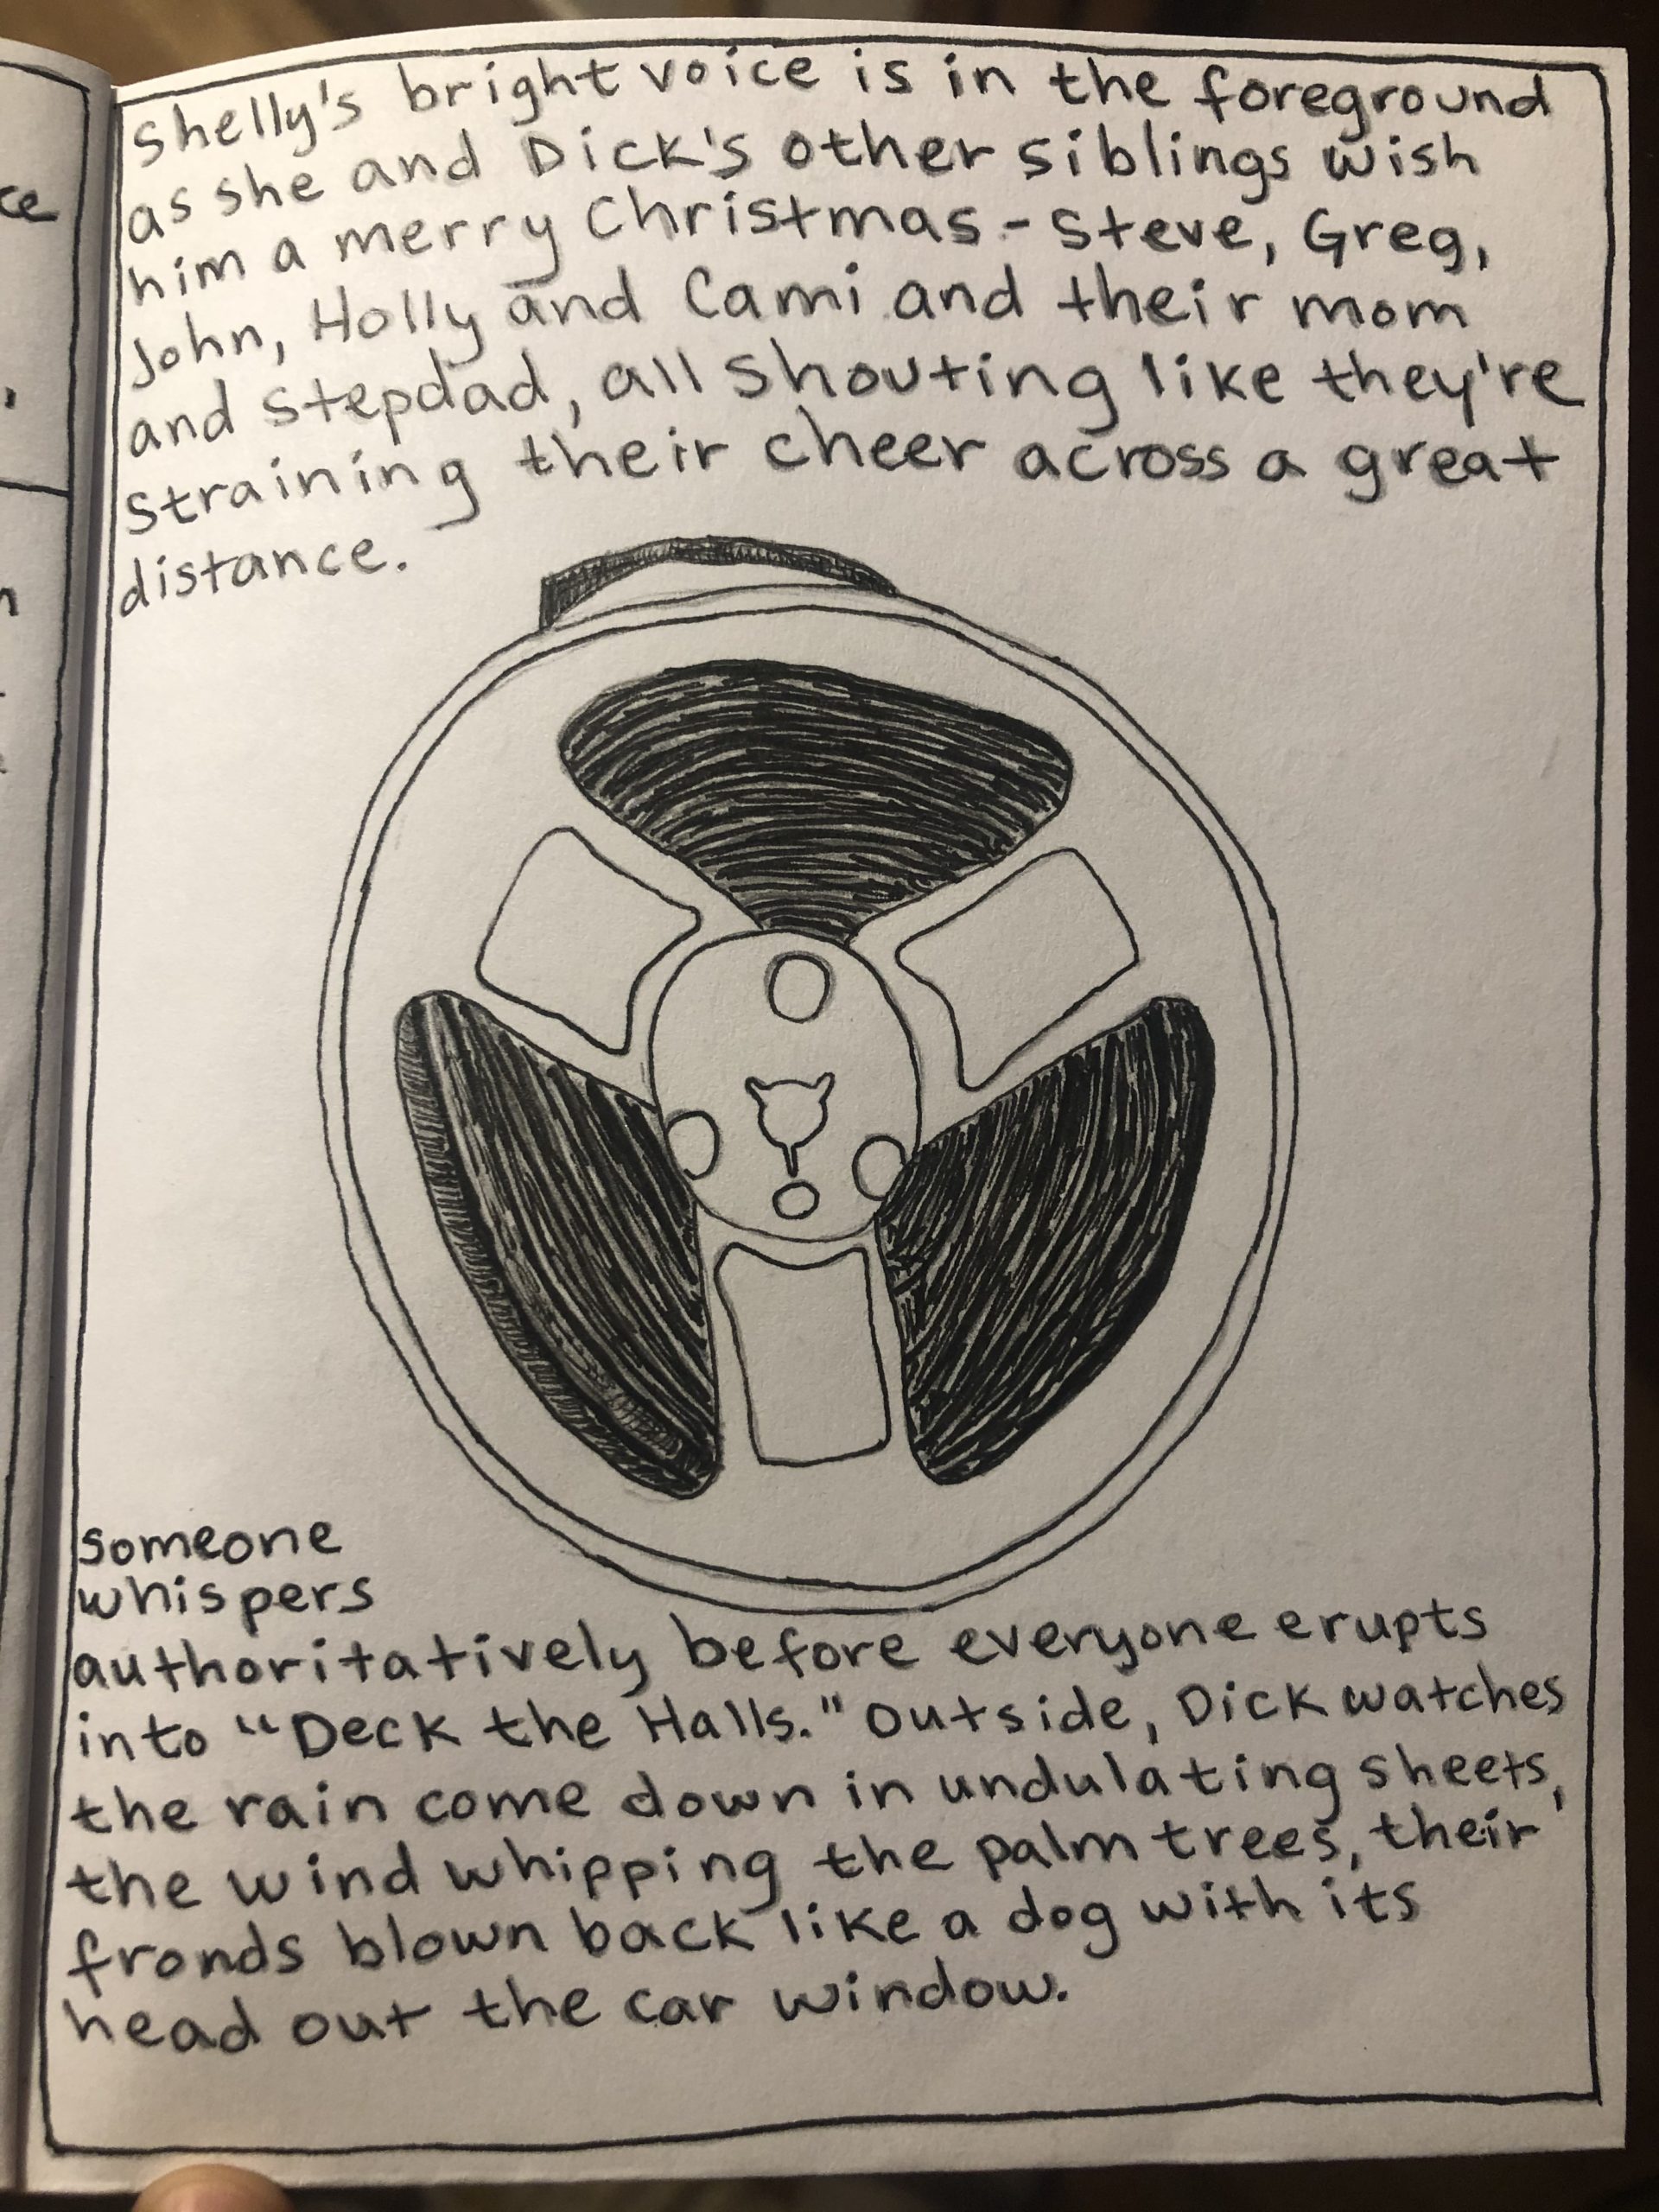 ce
,
n
Shelly's bright voice is in the foreground
as she and Dick's other siblings wish
him a merry Christmas - Steve, Greg,
John, Holly and Cami and their mom
and stepdad, all shouting like they're
straining their cheer across a great
distance.
someone
whispers
authoritatively before everyone erupts
into "Deck the Halls." Outside, Dick watches
the rain come down in undulating sheets,
the wind whipping the palm trees, their
fronds blown back like a dog with its
head out the car window.